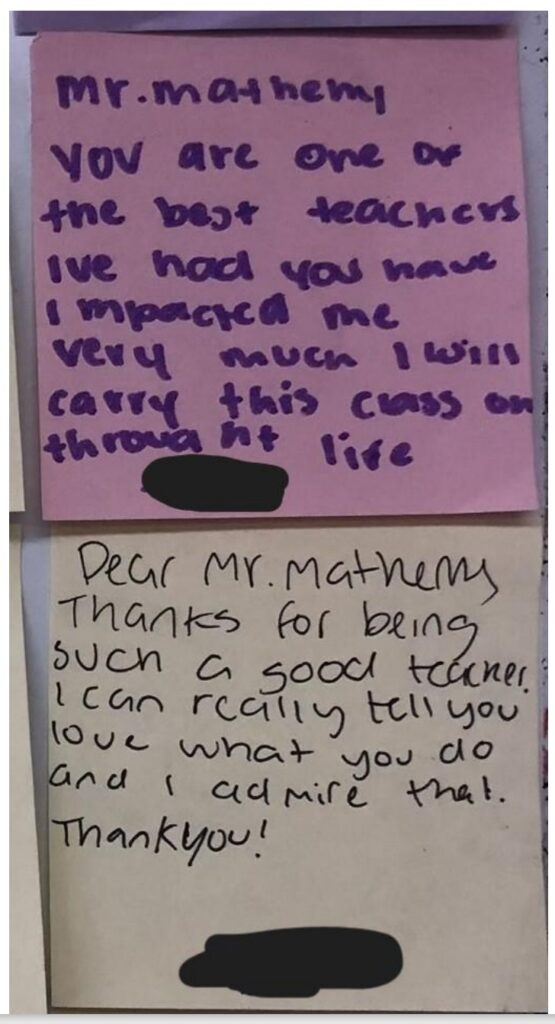 Mr. mathemy
you are one of
the best teachers
Ive had you have
impacted me
very much I will
carry this class on
throught life
Dear Mr. Matheny
Thanks for being
such a good teacher.
I can really tell you
love what you do
and I admire that.
Thankyou!